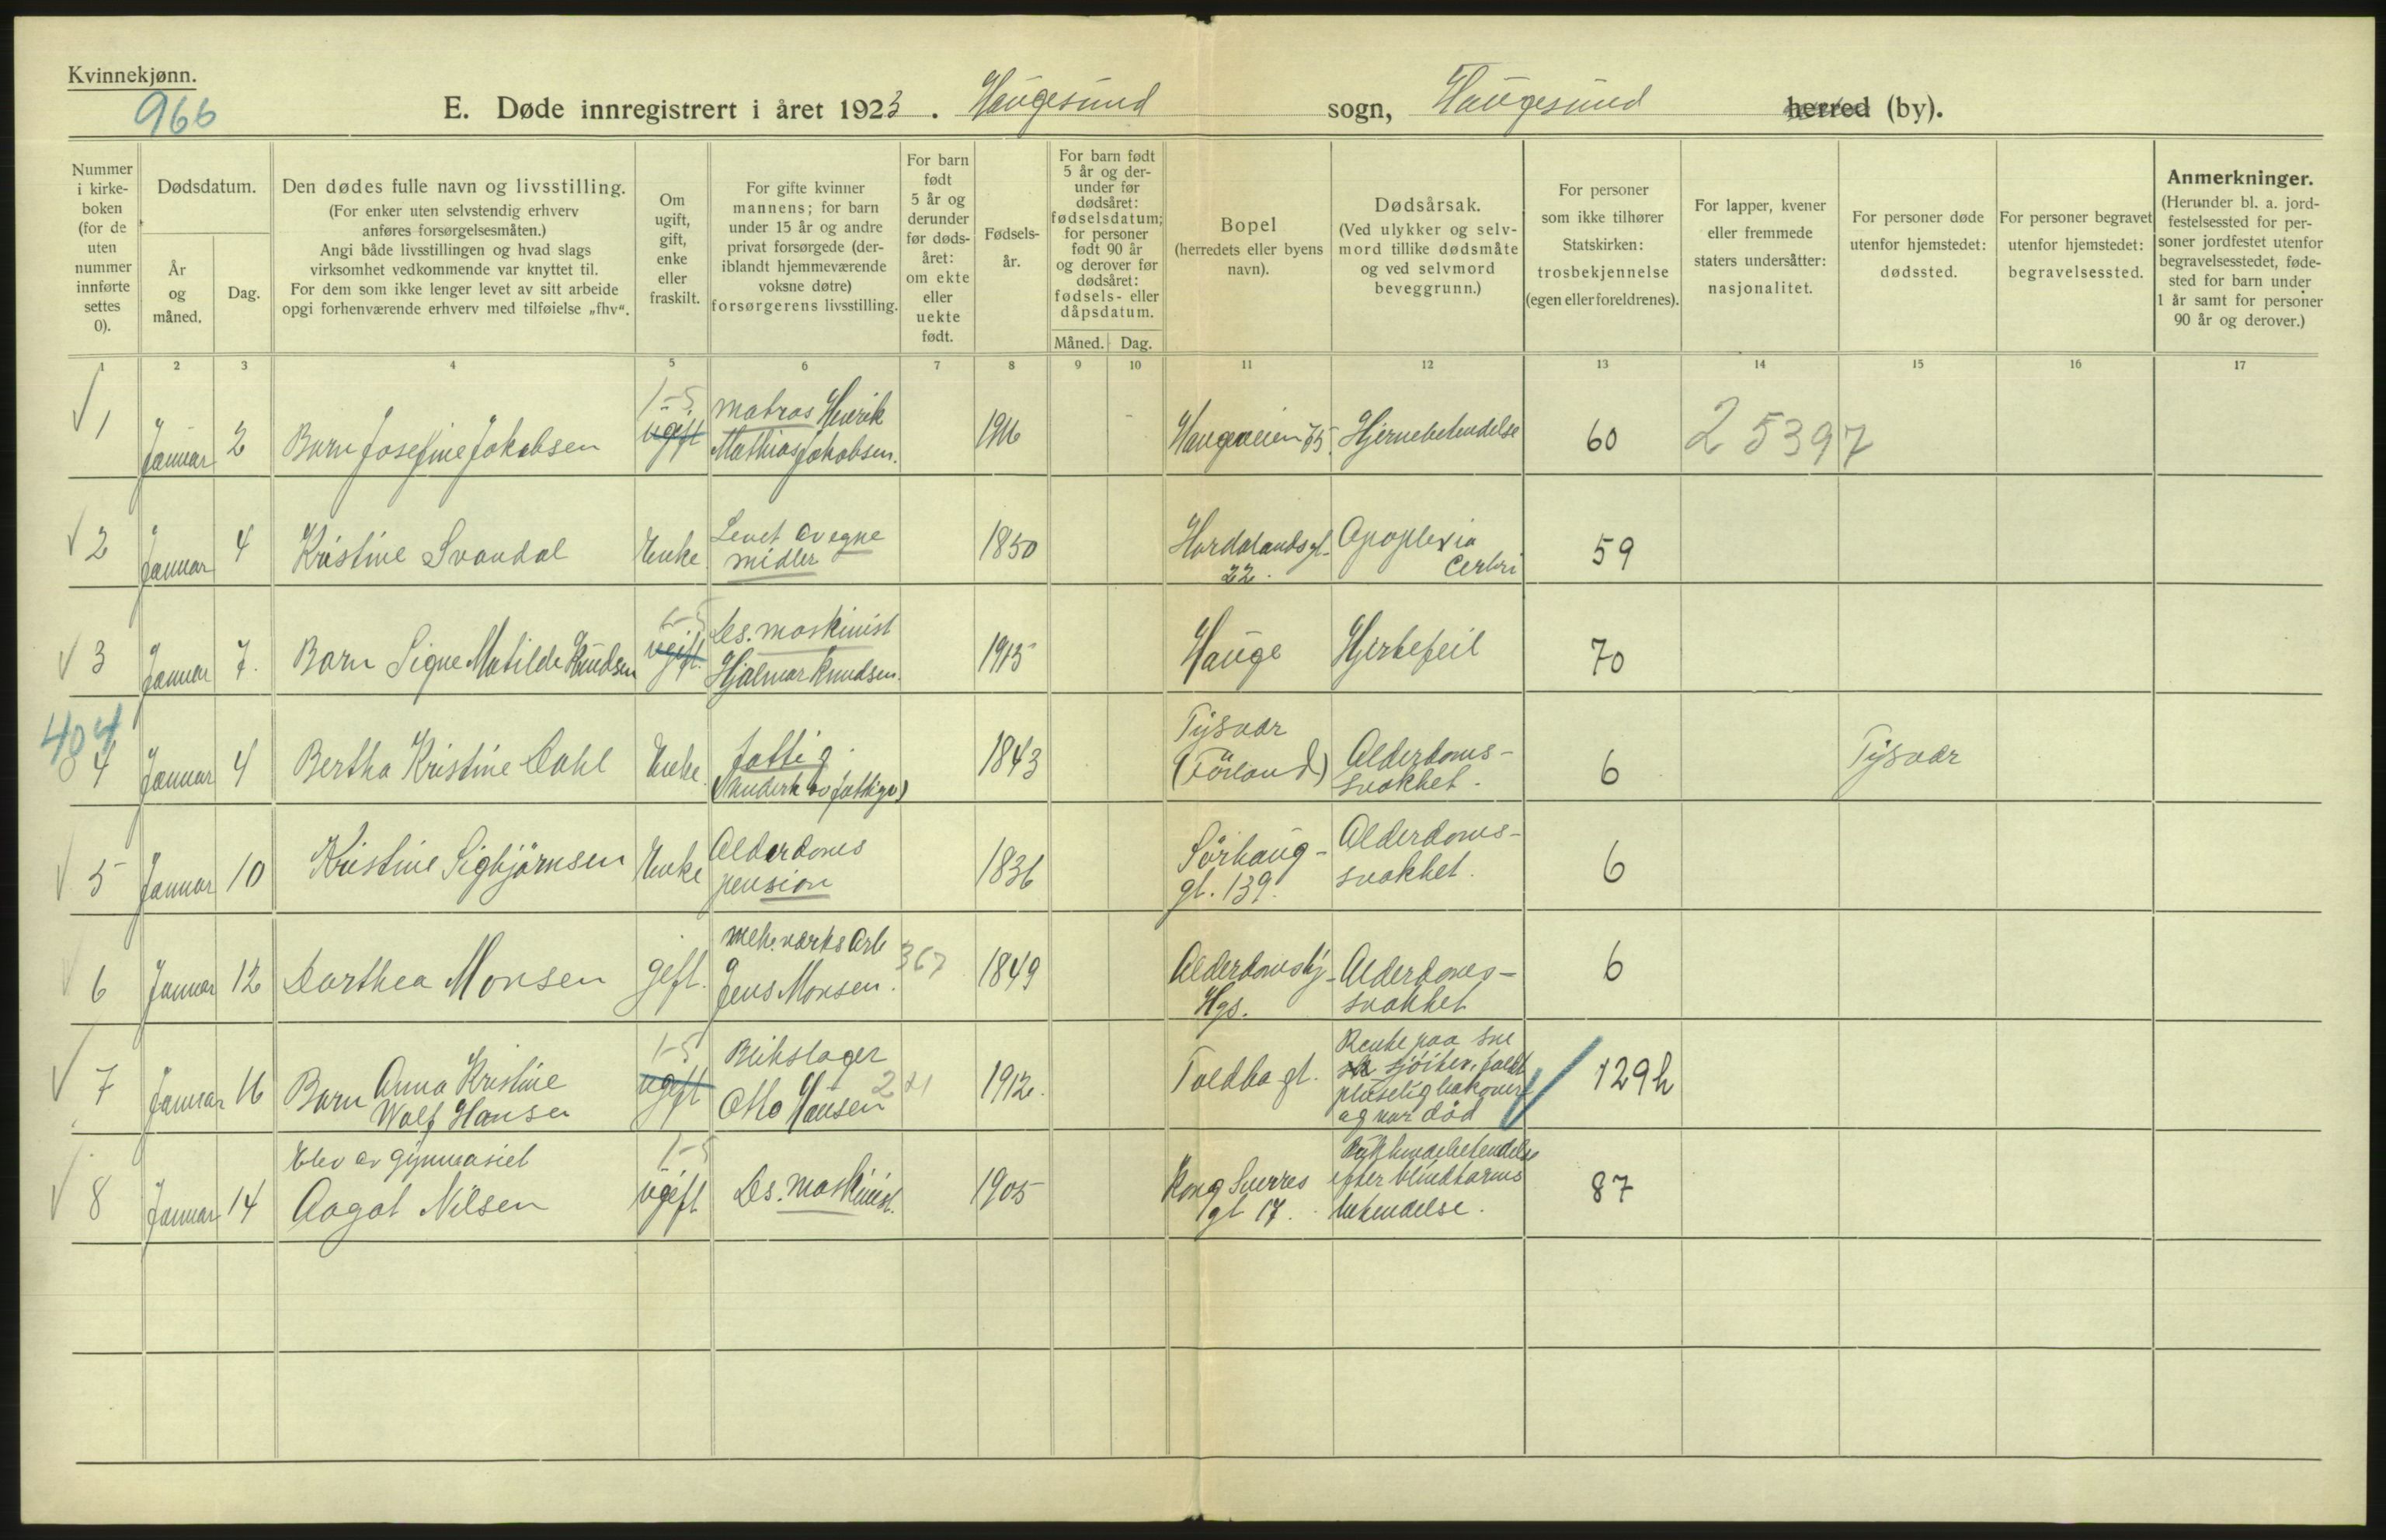 Kvinnekjønn.
966
E. Døde innregistrert i året 1923. Haugesund sogn, Haugesund herred (by).
Nummer i kirke-boken (for de uten nummer innførte settes 0).
Dødsdatum.
År og måned.
Dag.
Den dødes fulle navn og livsstilling.
(For enker uten selvstendig erhverv
anføres forsørgelsesmåten.)
Angi både livsstillingen og hvad slags
virksomhet vedkommende var knyttet til.
For dem som ikke lenger levet av sitt arbeide
opgi forhenværende erhverv med tilføielse „fhv“.
Om ugift, gift, enke eller fraskilt.
For gifte kvinner
mannens; for barn
under 15 år og andre
privat forsørgede (der-
iblandt hjemmeværende
voksne døtre)
forsørgerens livsstilling.
For barn født 5 år og derunder før døds-året: om ekte eller uekte født.
Fødsels-år.
For barn født
5 år og der-
under før
dødsåret:
fødselsdatum;
for personer
født 90 år
og derover før
dødsåret:
fødsels- eller
dåpsdatum.
Måned. Dag.
Bopel
(herredets eller byens
navn).
Dødsårsak.
(Ved ulykker og selv-
mord tillike dødsmåte
og ved selvmord
beveggrunn.)
For personer
som ikke tilhører
Statskirken:
trosbekjennelse
(egen eller foreldrenes).
For lapper, kvener
eller fremmede
staters undersåtter:
nasjonalitet.
For personer døde
utenfor hjemstedet:
dødssted.
For personer begravet
utenfor hjemstedet:
begravelsessted.
Anmerkninger.
(Herunder bl. a. jord-
festelsessted for per-
soner jordfestet utenfor
begravelsesstedet, føde-
sted for barn under
1 år samt for personer
90 år og derover.)
1 2 3 4 5 6 7 8 9 10 11 12 13 14 15 16 17
1 Januar 2 Barn Josefine Jakobsen 1-5 ugift matros Henrik
Mathias Jakobsen. 1916 Haugeveien 75. Hjernebetendelse 60 25397
2 Januar 4 Kristine Svandal Enke Levet av egne
midler 1850 Hordalandsgt.
22. Apoplexia
Cerbri 59
3 Januar 7. Barn Signe Matilde Knudsen 1-5 ugift. Ds. maskinist
Hjalmar Knudsen. 1915 Hauge Hjertefeil 70
404
4 Januar 4 Bertha Kristine Dahl Enke. fattig.
1843 Tysvær
(Förland) Alderdoms-
svakhet. 6 Tysvær
5 Januar 10 Kristine Sigbjørnsen Enke Alderdoms
pension 1836 Sörhaug-
gt. 139. Alderdoms-
svakhet. 6
6 Januar 12 Darthea Monsen gift. mek. værks Arb
Jens Monsen. 367 1849 Alderdomshj.
Hgs. Alderdoms-
svakhet 6
7 Januar 16 Barn Anna Kristine
Wolf Hansen 1-5 ugift Blikslager
Otto Hansen 221 1912. Toldbo gt. Rendte paa sne
pluselig bakover
og var död 129h
8 Januar 14 Elev av gymnasiet
Aagot Nilsen 1-5 ugift Ds. maskinist. 1905 Kong Sverres
gt 17. Bukhindebetendelse
efter blindtarms
betendelse. 87